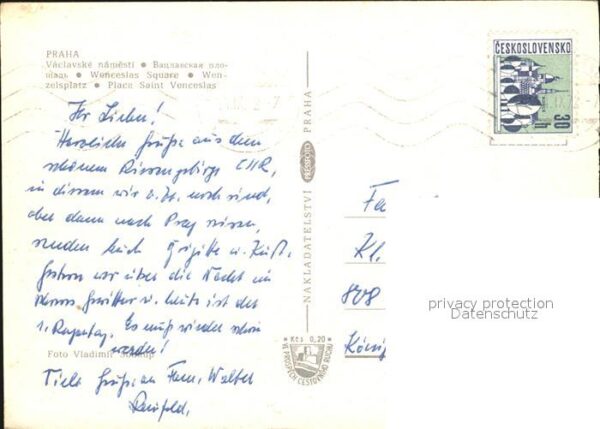 PRAHA
Václavské náměstí • Вацлавская пло-
щадь • Wenceslas Square • Wen-
zelsplatz • Place Saint Venceslas
Ihr Lieben!
Herzliche Grüße aus dem
schönen Riesengebirge ČSSR,
in dessem wir z.Zt. noch sind,
aber dann nach Prag reisen,
senden Euch Brigitte u.
Gestern war über die Nacht ein
Gewitter u. heute ist der
1. Regentag. Es muß wieder schön
werden!
Foto Vladimír
Viele Grüße an Fam. Walter
NAKLADATELSTVÍ PRESSFOTO PRAHA
ČESKOSLOVENSKO
30 h
Kčs 0,20
VE PROSPĚCH CESTOVNÍHO RUCHU
Fa
Kl.
808
König
privacy protection
Datenschutz